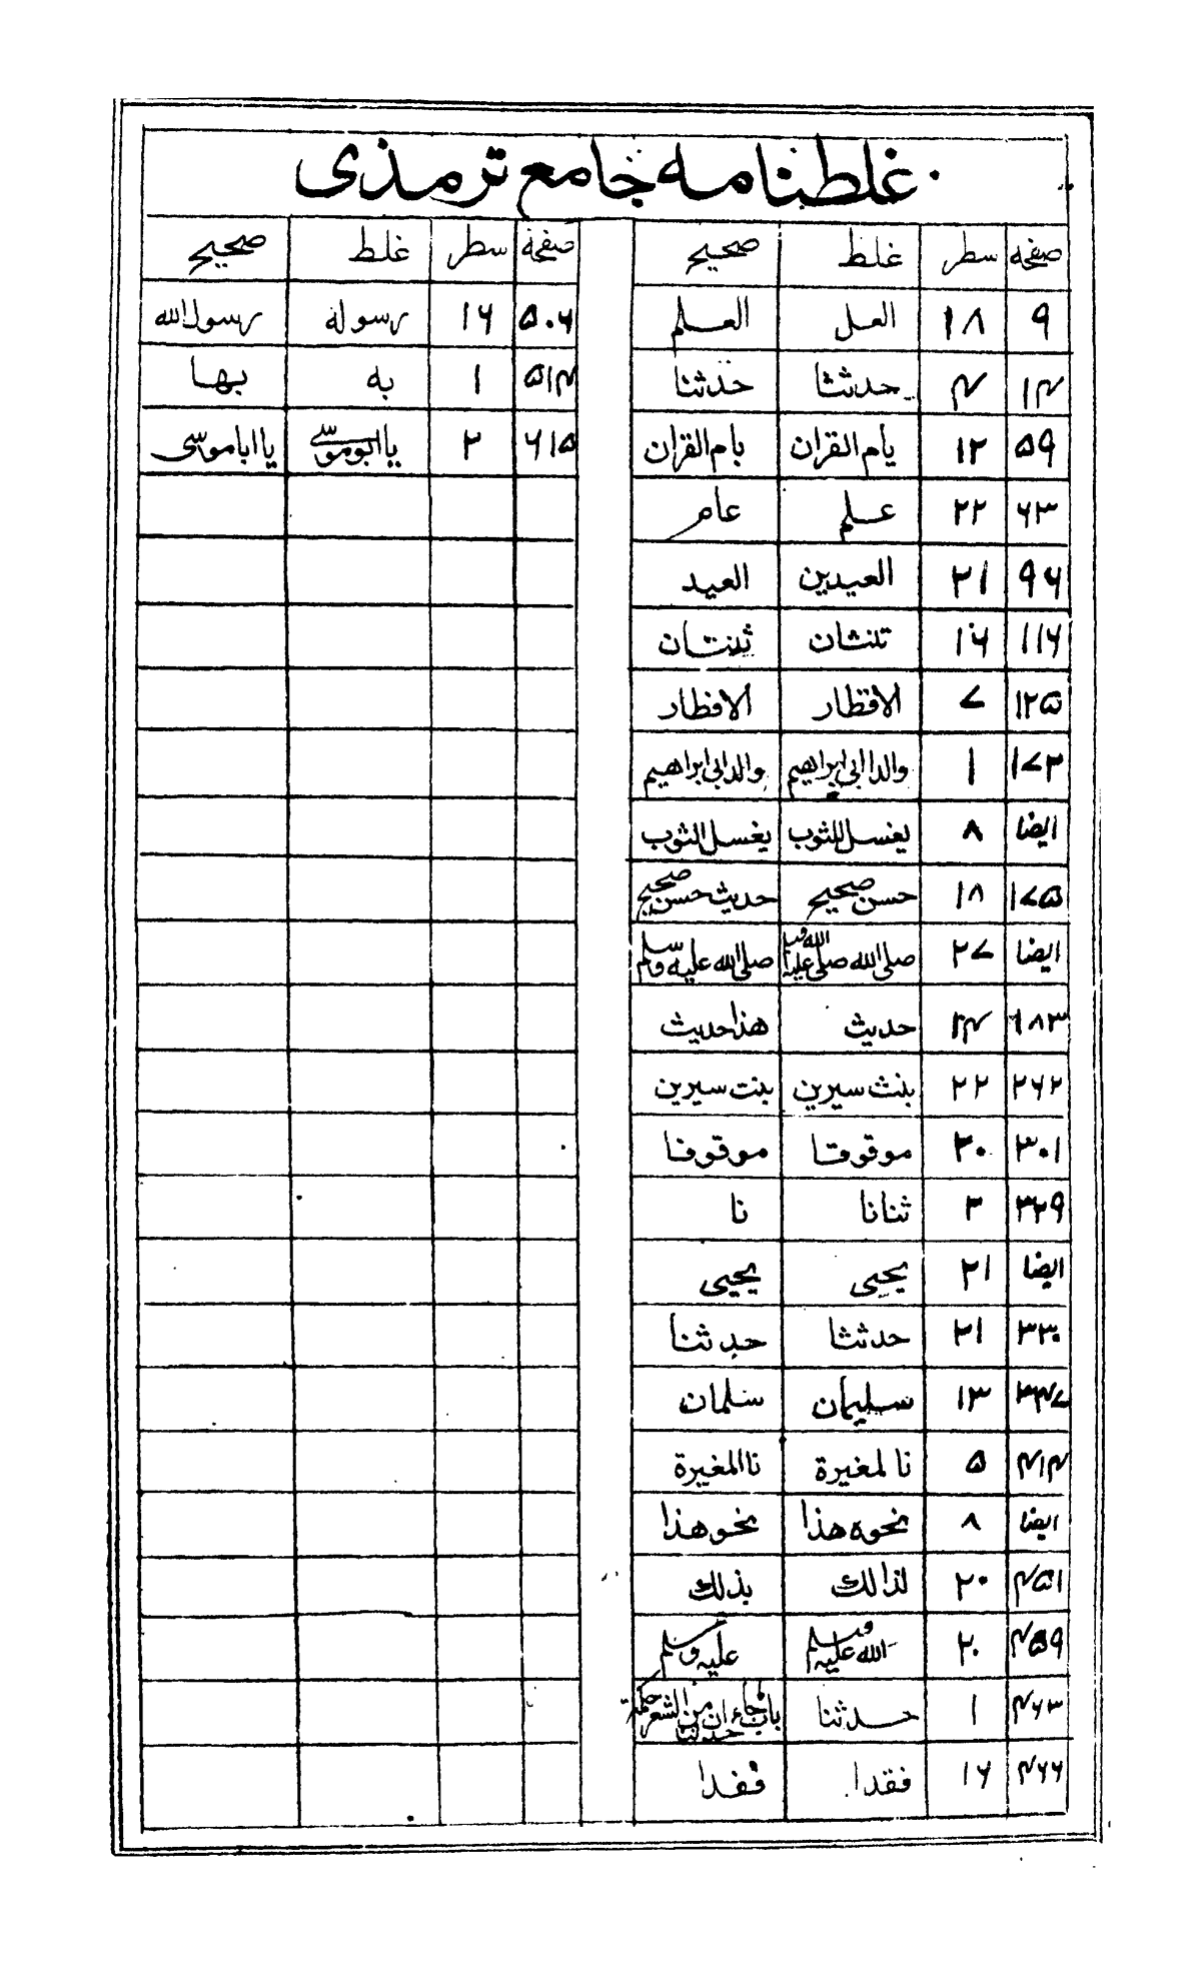 غلطنامه جامع ترمذی
صفحه سطر غلط صحیح
۹ ۱۸ العل العلم
۱۴ ۴ حدثثا حدثنا
۵۹ ۱۲ یام القران بام القران
۶۳ ۲۲ علم عام
۹۶ ۲۱ العیدین العید
۱۱۶ ۱۶ تنثان ثنتان
۱۲۵ ۷ الاقطار الافطار
۱۷۳ ۱ والدا ابی ابراهیم والد ابی ابراهیم
ایضا ۸ یغسل للثوب یغسل الثوب
۱۷۵ ۱۸ حسن صحیح حدیث حسن صحیح
ایضا ۲۷ صلی الله صلی الله علیه وسلم صلی الله علیه وسلم
۱۸۳ ۱۴ حدیث هذا حدیث
۲۶۲ ۲۲ بنث سیرین بنت سیرین
۳۰۱ ۲۰ موقوقا موقوفا
۳۲۹ ۳ ثنانا نا
ایضا ۲۱ یحیی یحیی
۳۳۰ ۲۱ حدثثا حدثنا
۳۴۷ ۱۳ سلیمان سلمان
۴۱۴ ۵ نا لمغیرة نا المغیرة
ایضا ۸ نحوه هذا نحو هذا
۴۵۱ ۲۰ لذالك بذلك
۴۵۹ ۲۰ الله علیه وسلم علیه وسلم
۴۶۳ ۱ حدثنا باب ماجاء ان من الشعر حکمة حدثنا
۴۶۶ ۱۶ فقدا ففدا
صفحه سطر غلط صحیح
۵۰۶ ۱۶ رسوله رسول الله
۵۱۴ ۱ به بها
۶۱۵ ۲ یا ابو موسی یا ابا موسی